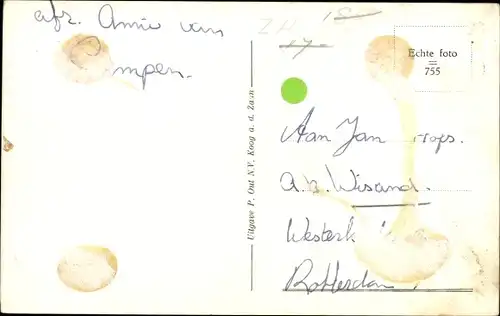 afz. Annie van
Pampen.
Z.H. 15
17
Echte foto
=
755
Uitgave P. Out N.V. Koog a. d. Zaan
Aan Jan
a.b. Wisand.
Westerk
Rotterdam